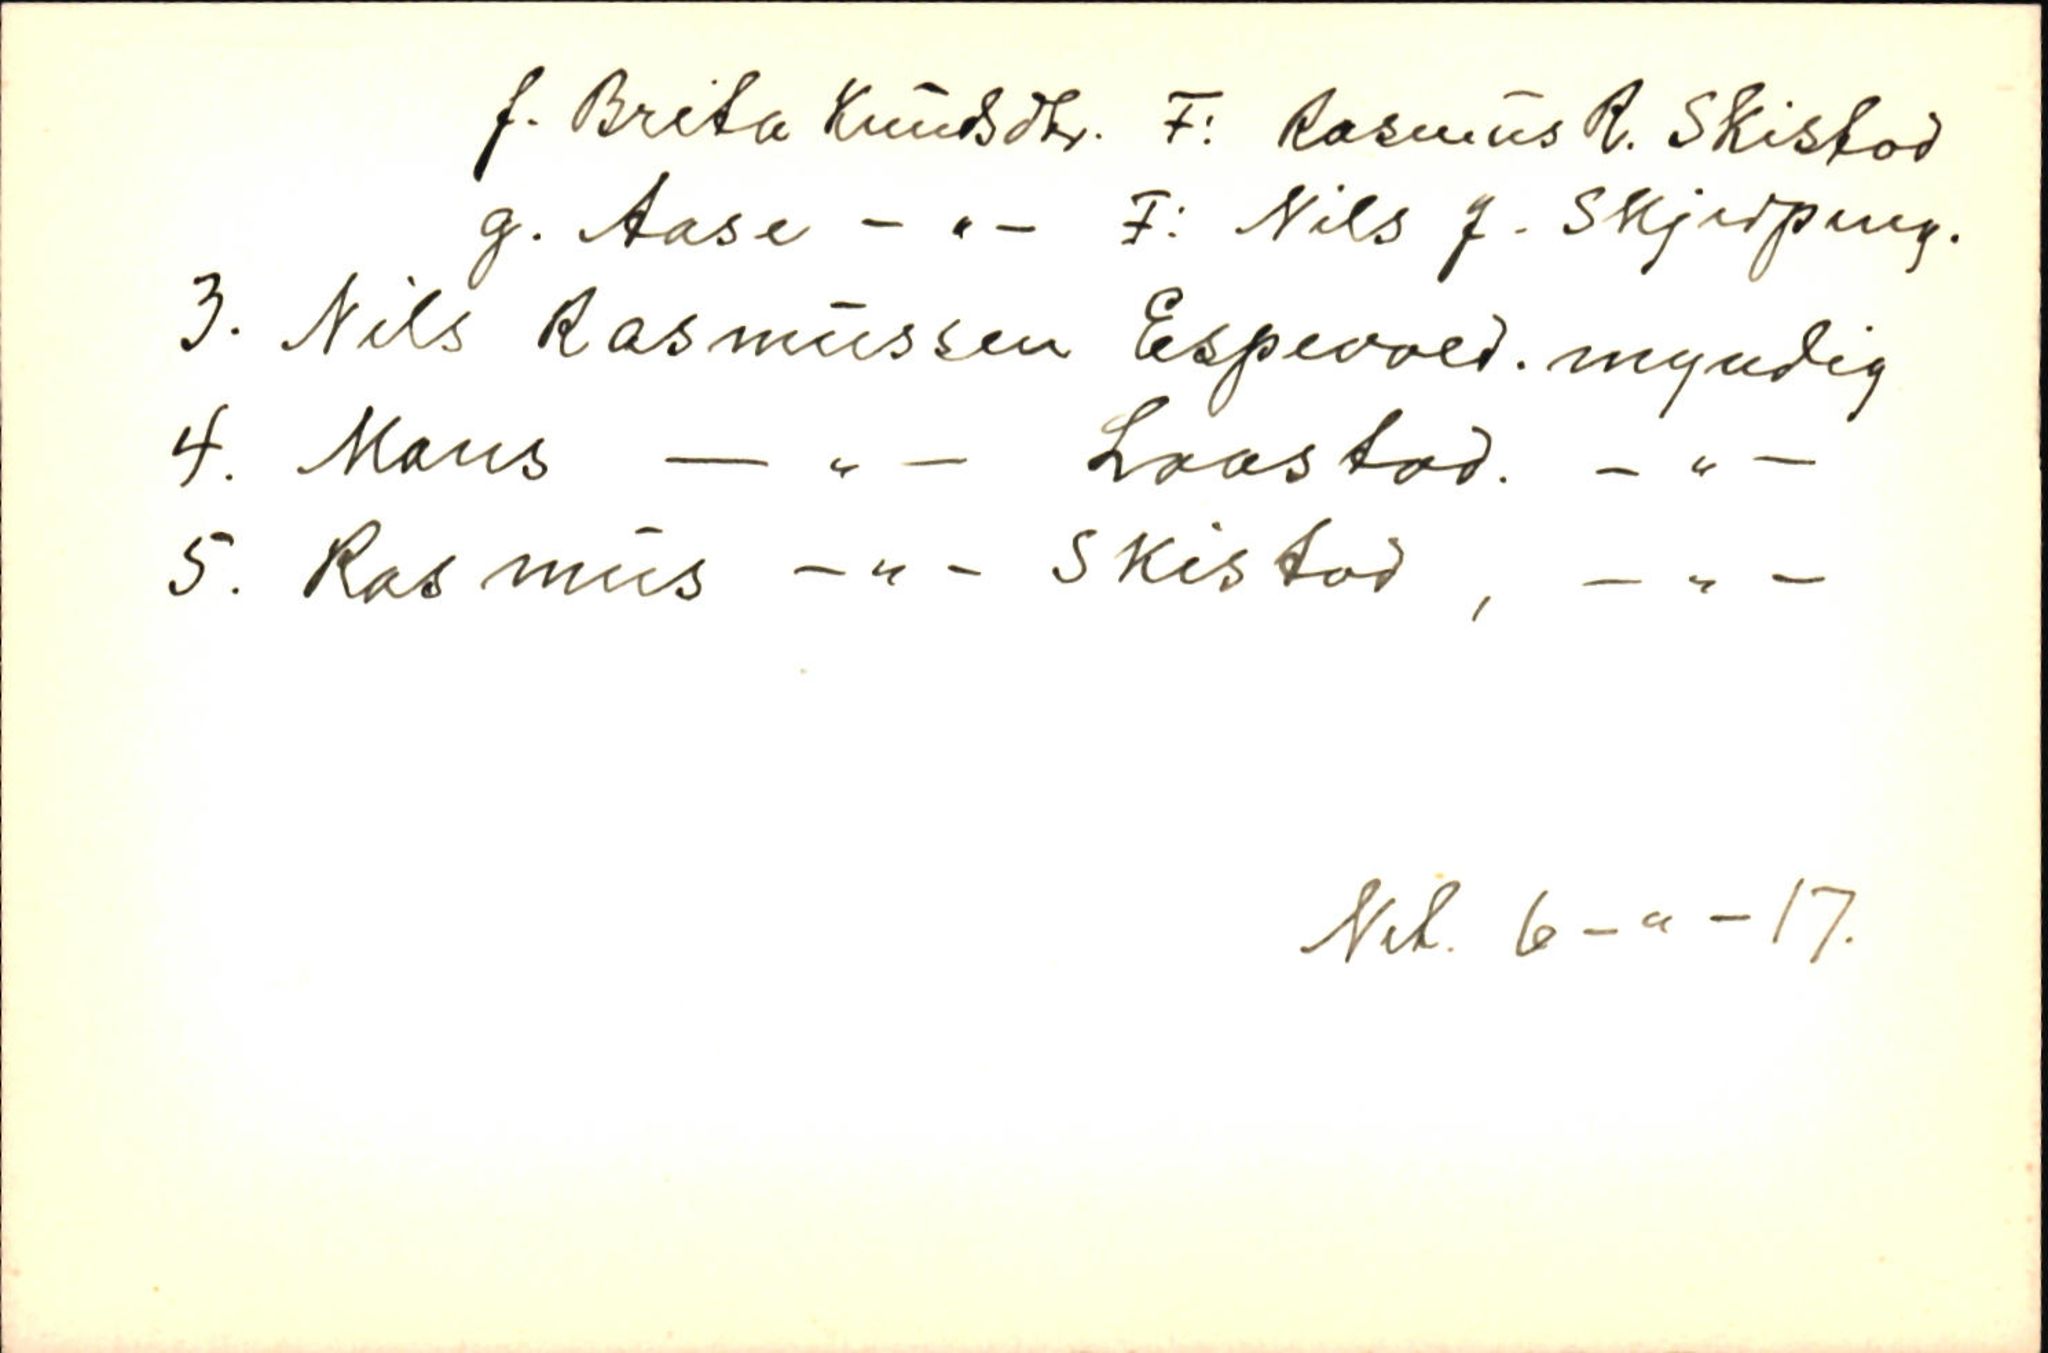 f. Brita Knudsdtr. F: Rasmus R. Skistad
g. Aase - " - F: Nils J.
3. Nils Rasmussen Espevold. myndig
4. Mons — " — Laastad. - " -
5. Rasmus - " - Skistad, - " -
Net. 6 - " - 17.